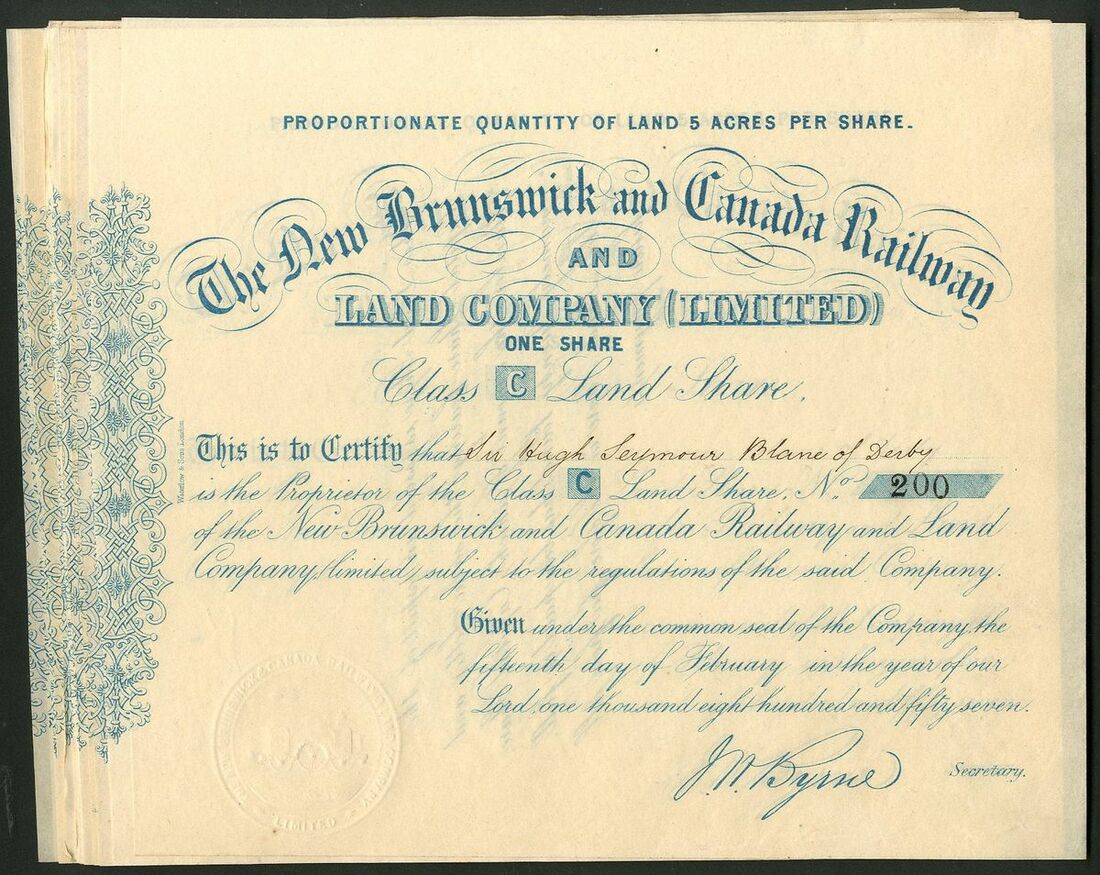 PROPORTIONATE QUANTITY OF LAND 5 ACRES PER SHARE.
The New Brunswick and Canada Railway
AND
LAND COMPANY (LIMITED)
ONE SHARE
Class C Land Share.
This is to Certify that Sir Hugh Seymour Blane of Derby
is the Proprietor of the Class C Land Share, No. 200
of the New Brunswick and Canada Railway and Land
Company, limited, subject to the regulations of the said Company.
Given under the common seal of the Company, the
fifteenth day of February in the year of our
Lord, one thousand eight hundred and fifty seven.
J. W. Byrne Secretary.
Waterlow & Sons London
CANADA RAILWAY
LIMITED